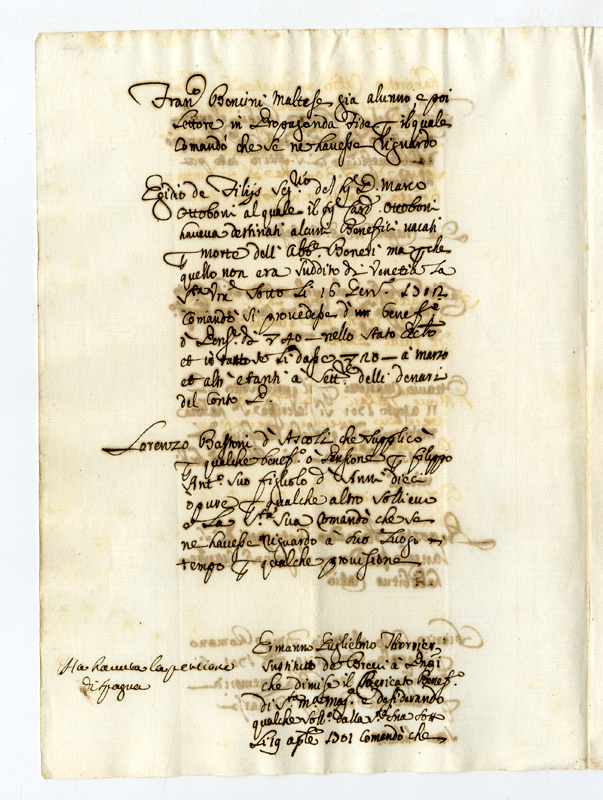 Fran.co Boncini Maltese gia alunno, e poi
Lettore in Propaganda Fide il quale
Comandò che se ne havesse riguardo
Egidio de Filijs del Sig. D. Marco
Ottoboni al quale il Sig. Card. Ottoboni
haveva destinati alcuni Benefitii vacati
morte dell' Abb. Boneri ma che
quello non era suddito di Venetia la
sotto li 16
Comandò si provedesse d'un benef.o
ò Pens.e di 40 — nello stato
et in tanto se li dasse 20 — a marzo
et altri etanti à Sett.e delli denari
del Conto
Lorenzo Bastoni d'Ascoli che supplicò
qualche benef.o ò Pensione Filippo
Ant.o suo figliolo d'Anni dieci
opure qualche altro sollievo
La S.tà Sua Comandò che se
ne havesse riguardo à suo luogo e
tempo qualche provisione
Ha havuta la pensione
di Spagna
Ermanno Guglielmo
sustituto de Brevi à
che dimise il Benef.o
di e desiderando
qualche dalla S.tà Sua sott
li 19 Comandò che